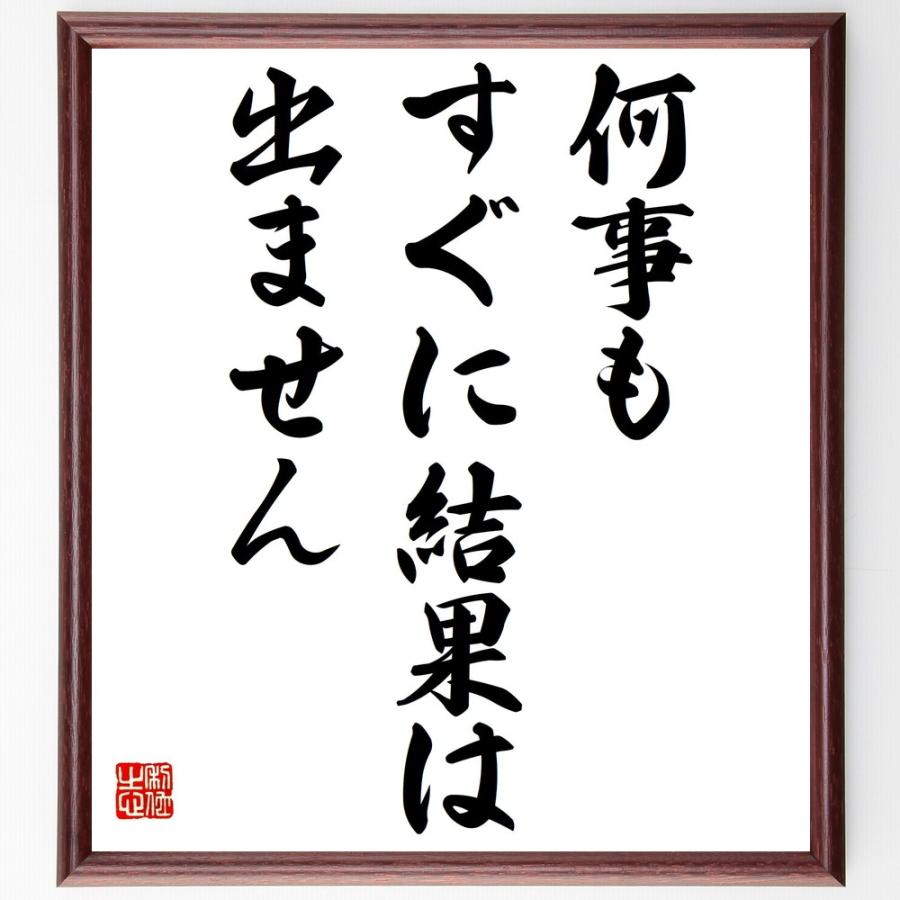 何事も
すぐに結果は
出ません